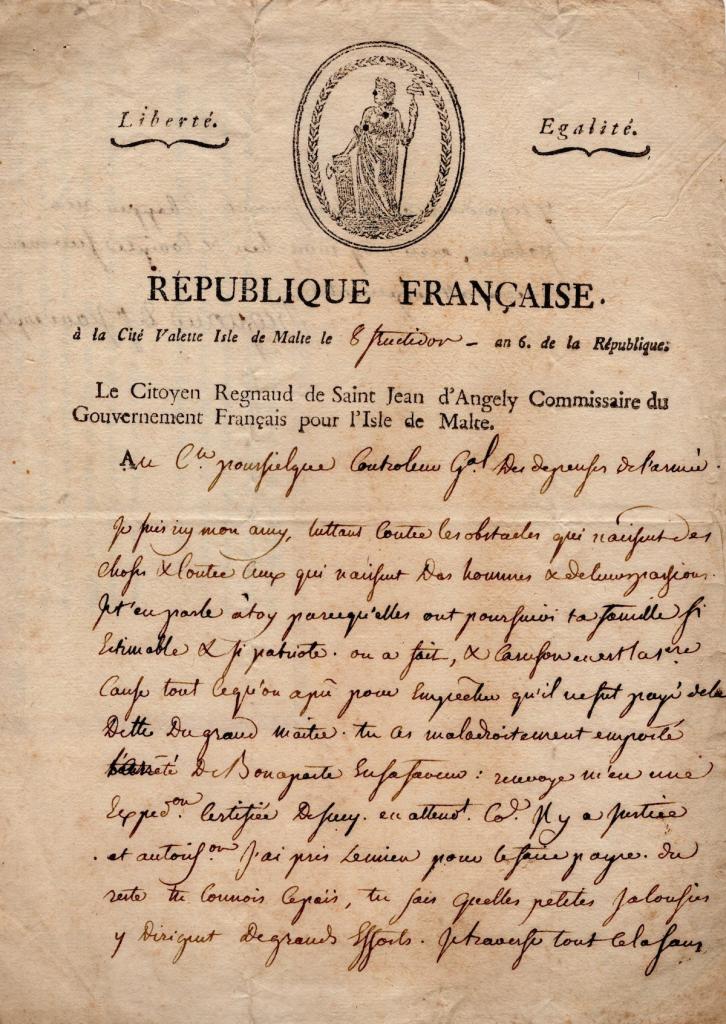 Liberté.
Egalité.
RÉPUBLIQUE FRANÇAISE.
à la Cité Valette Isle de Malte le 8 fructidor - an 6. de la République.
Le Citoyen Regnaud de Saint Jean d'Angely Commissaire du
Gouvernement Français pour l'Isle de Malte.
Au C.en poussielgue Controleur Gal Des depenses de l'armée.
Je suis icy mon amy, luttant Contre les obstacles qui naissent des
choses & Contre Ceux qui naissent Des hommes & de leurs passions.
Je t'en parle à toy parcequ'elles ont poursuivi ta famille si
Estimable & si patriote. on a fait, & Caruson en est la 1re
Cause tout ce qu'on a pu pour Empêcher qu'il ne fut payé de la
Dette Du grand maitre. tu as maladroitement emporté
l'arrêté De Bonaparte En sa faveur : renvoye m'en une
Exped.on Certifiée De Sucy. en attend.t Co.e Il y a Justice
et autoris.on J'ai pris Le mien pour le faire payer. du
reste tu Connois Ce païs, tu sais quelles petites Jalousies
y Dirigent De grands Efforts. Je traverse tout Cela sans